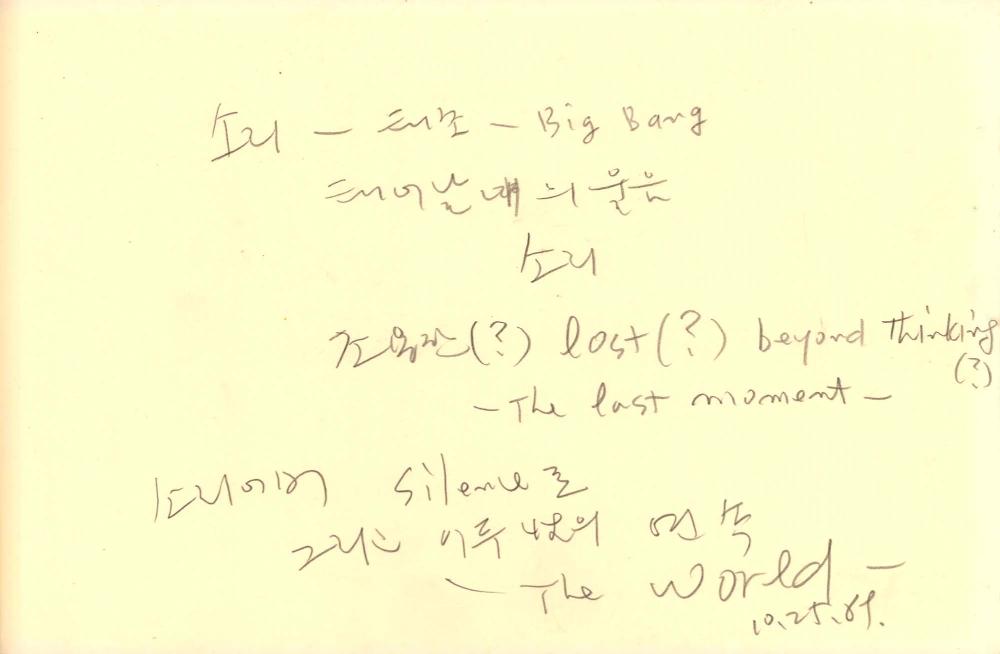 소리 — 태초 — Big Bang
태어날 때의 울음
소리
조용한(?) lost(?) beyond thinking
(?)
— The last moment —
소리에서 silence로
그리고 이루 의 연속
— The World —
10.25.89.